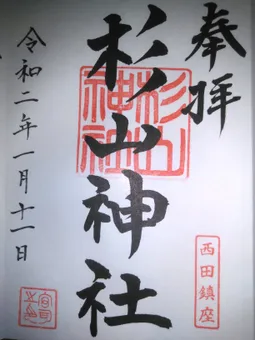 奉拝
西田鎮座
杉山神社
杉山神社
令和二年一月十一日